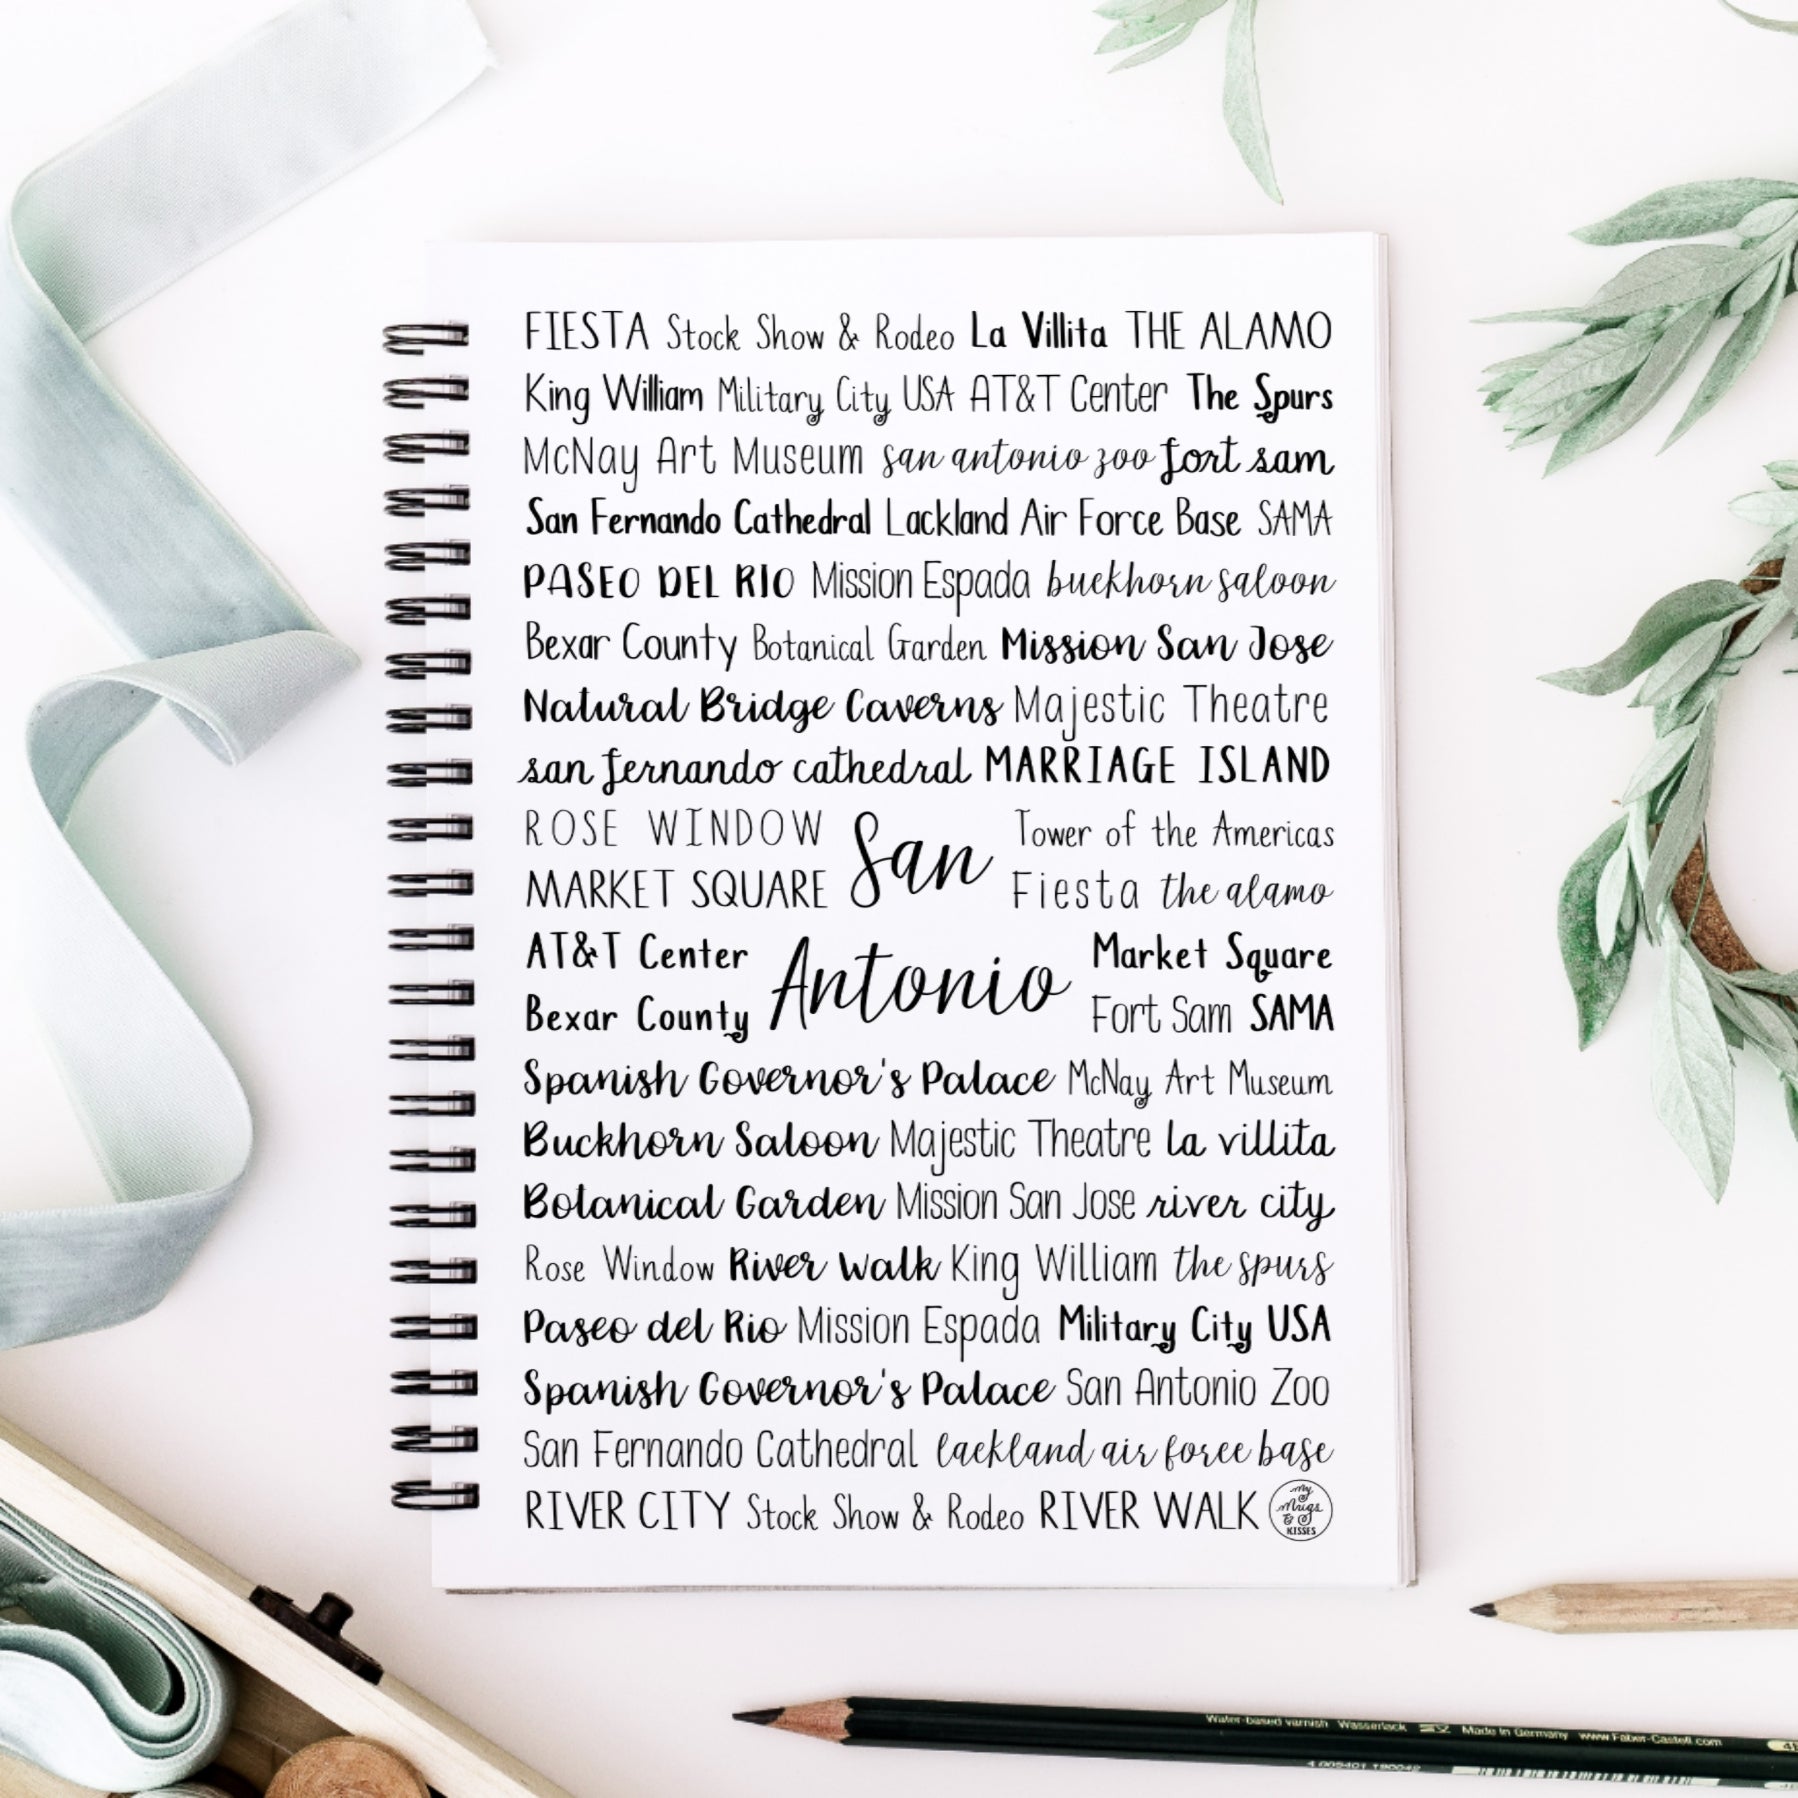 FIESTA Stock Show & Rodeo La Villita THE ALAMO
King William Military City USA AT&T Center The Spurs
McNay Art Museum san antonio zoo fort sam
San Fernando Cathedral Lackland Air Force Base SAMA
PASEO DEL RIO Mission Espada buckhorn saloon
Bexar County Botanical Garden Mission San Jose
Natural Bridge Caverns Majestic Theatre
san fernando cathedral MARRIAGE ISLAND
ROSE WINDOW San Tower of the Americas
MARKET SQUARE Fiesta the alamo
AT&T Center Antonio Market Square
Bexar County Fort Sam SAMA
Spanish Governor's Palace McNay Art Museum
Buckhorn Saloon Majestic Theatre la villita
Botanical Garden Mission San Jose river city
Rose Window River Walk King William the spurs
Paseo del Rio Mission Espada Military City USA
Spanish Governor's Palace San Antonio Zoo
San Fernando Cathedral lackland air force base
RIVER CITY Stock Show & Rodeo RIVER WALK
My
Mugs
&
KISSES
Water-based varnish Wasserlack Made in Germany www.Faber-Castell.com
4 005401 190042